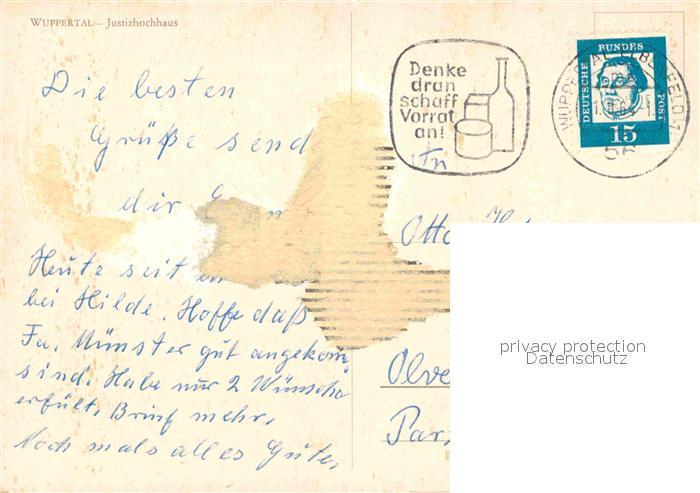 WUPPERTAL – Justizhochhaus
Die besten
Grüße send
dir
Heute seit
bei Hilde. Hoffe daß
Fa. Münster gut angekom
sind. Habe nur 2 Wünsche
erfült, Brinf mehr.
Noch mals alles Gute.
Denke
dran
schaff
Vorrat
an!
DEUTSCHE
BUNDES
POST
15
WUPPERTAL-ELBERFELD 1
56
An
Otto
Olve
Par
privacy protection
Datenschutz